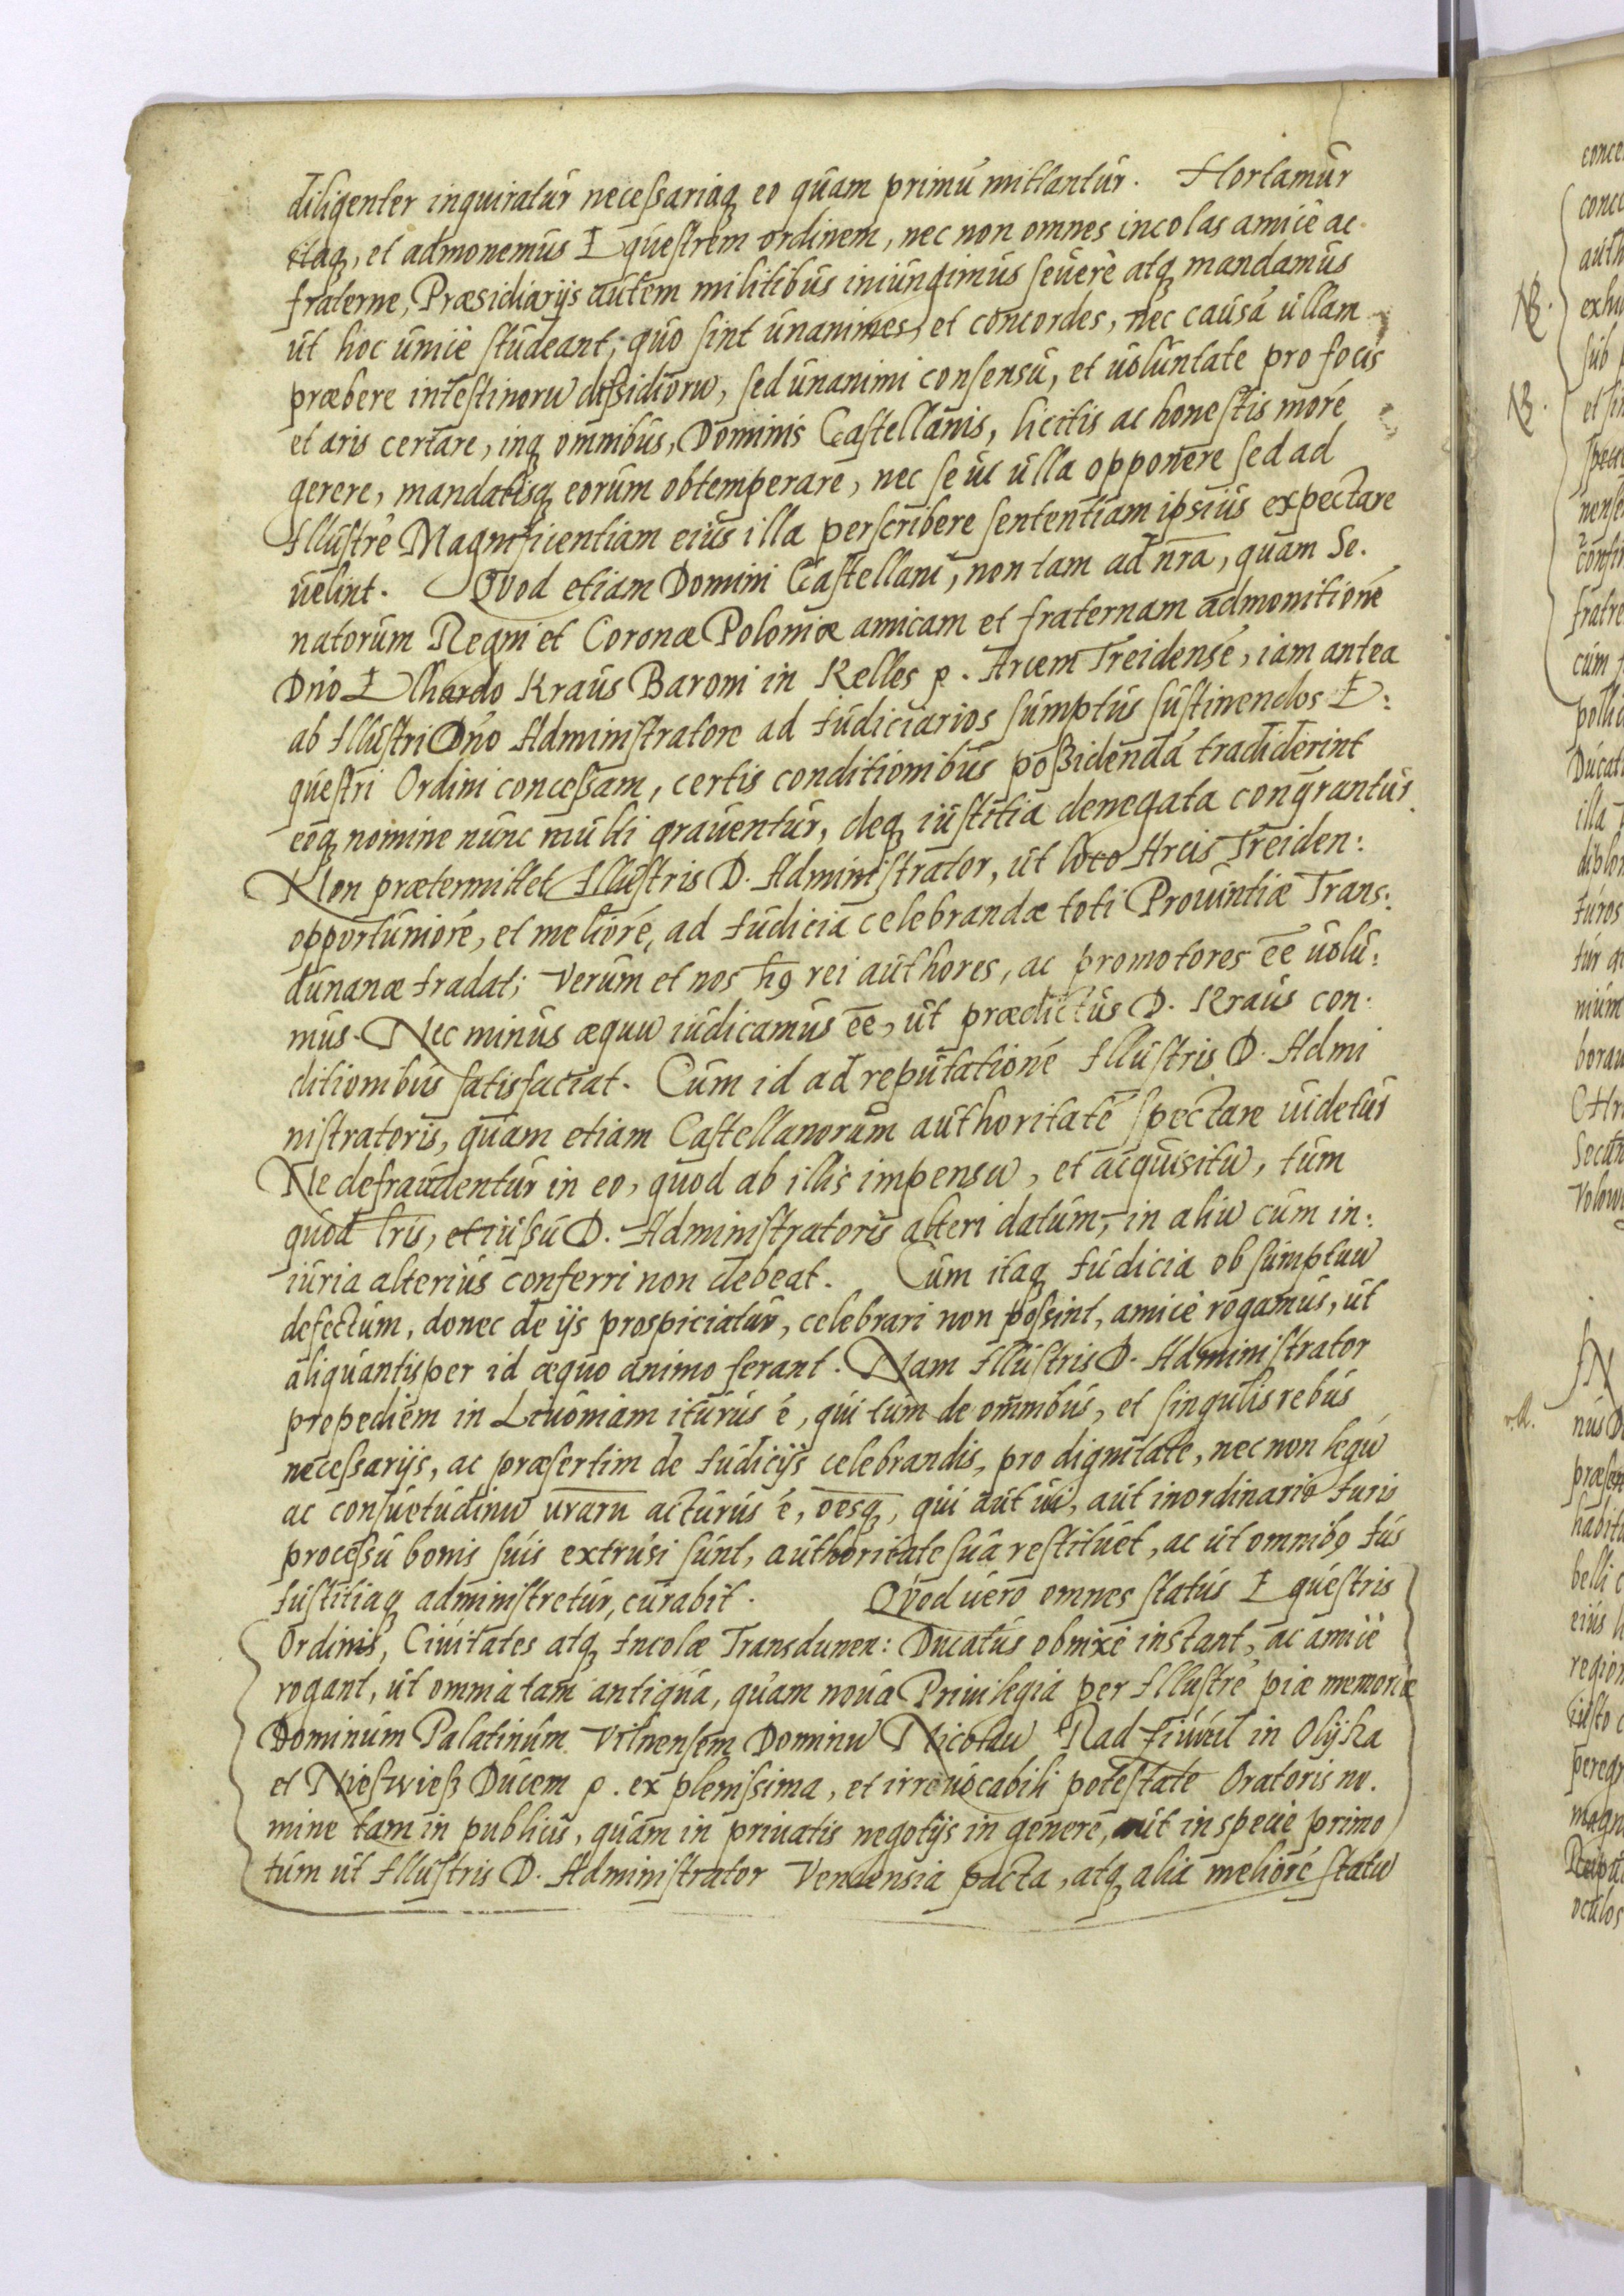 diligenter inquiratur necessariaq́ eo quam primū mittantur. Hortamur
itaq́, et admonemus Equestrem ordinem, nec non omnes incolas amicè ac
fraterne, Præsidiarijs autem militibus iniungimus seuerè atq́ mandamus
ut hoc unicè studeant, quo sint unanimes, et concordes, nec causā ullam
præbere intestinorū dissidiorū, sed unanimi consensu, et uoluntate pro focis
et aris certare, inq́ omnibus, Dominis Castellanis, licitis ac honestis morē
gerere, mandatisq́ eorum obtemperare, nec se ui ulla opponere sed ad
Illustrē Magnificentiam eius illa perscribere sententiam ipsius expectare
uelint. Quod etiam Domini Castellani, non tam ad nrā, quam Se.
natorum Regni et Coronæ Poloniæ amicam et fraternam admonitionē
Dn̄o Elhardo Kraus Baroni in Kelles p. Arcem Treidensē, iam antea
ab Illustri Dn̄o Administratore ad Iudiciarios sumptus sustinendos E:
questri Ordini concessam, certis conditionibus possidendā tradiderint
eoq́ nomine nunc multi grauentur, deq́ iustitia denegata conqrantur
Non prætermittet Illustris D. Administrator, ut loco Arcis Treiden:
opportuniorē, et meliorē, ad Iudicia celebrandæ toti Prouintiæ Trans:
dunanæ tradat; Verum et nos h9 rei authores, ac promotores ēē uolu:
mus. Nec minus æquū iudicamus ēē, ut prædictus D. Kraus con:
ditionibus satisfaciat. Cum id ad reputationē Illustris D. Admi
nistratoris, quam etiam Castellanorum authoritatē spectare uidetur
Ne defraudentur in eo, quod ab illis impensū, et acquisitū, tum
quod lr̄is, et iussu D. Administratoris alteri datum, in aliū cum in:
iuria alterius conferri non debeat. Cum itaq́ Iudicia ob sumptuū
defectum, donec de ijs prospiciatur, celebrari non possint, amicè rogamus, ut
aliquantisper id æquo animo ferant. Nam Illustris D. Administrator
propediem in Liuoniam iturus ē, qui tum de omnibus, et singulis rebus
necessarijs, ac præsertim de Iudicijs celebrandis, pro dignitate, nec non legū
ac consuetudinū vrarū acturus ē, oēsq́, qui aut ui, aut inordinario Iuris
processu bonis suis extrusi sunt, authoritate sua restituet, ac ut omnib9 Ius
Iustitiaq́ administretur, curabit. Quod uero omnes status Equestris
Ordinis, Ciuitates atq́ Incolæ Transdunen: Ducatus obnixè instant, ac amicè
rogant, ut omnia tam antiqua, quam noua Priuilegia per Illustrē piæ memoriæ
Dominum Palatinum Vilnensem Dominū Nicolaū Radziuiil in Olijka
et Nieswiess Ducem p. ex plenissima, et irreuocabili potestate Oratoris no.
mine tam in publicis, quam in priuatis negotijs in genere, aut in specie primo
tum ut Illustris D. Administrator Vendensia pacta, atq́ alia meliorē statū